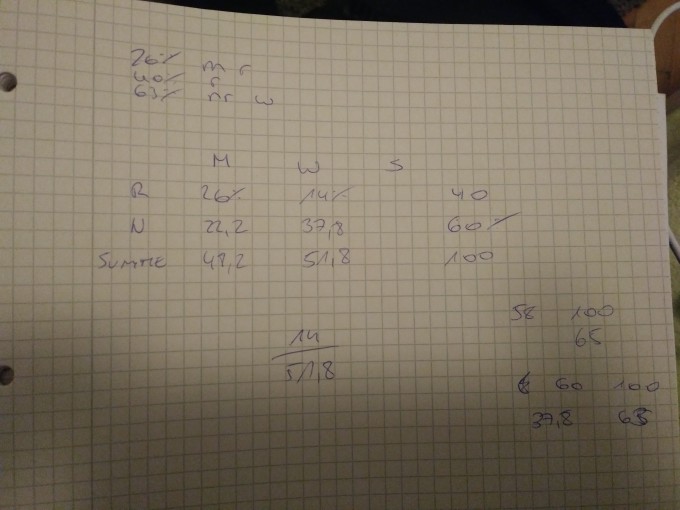 26% m r
40% r
63% nr w
M W S
R 26% 14% 40
N 22,2 37,8 60%
Summe 48,2 51,8 100
14
51,8
58 100
65
60 100
37,8 63